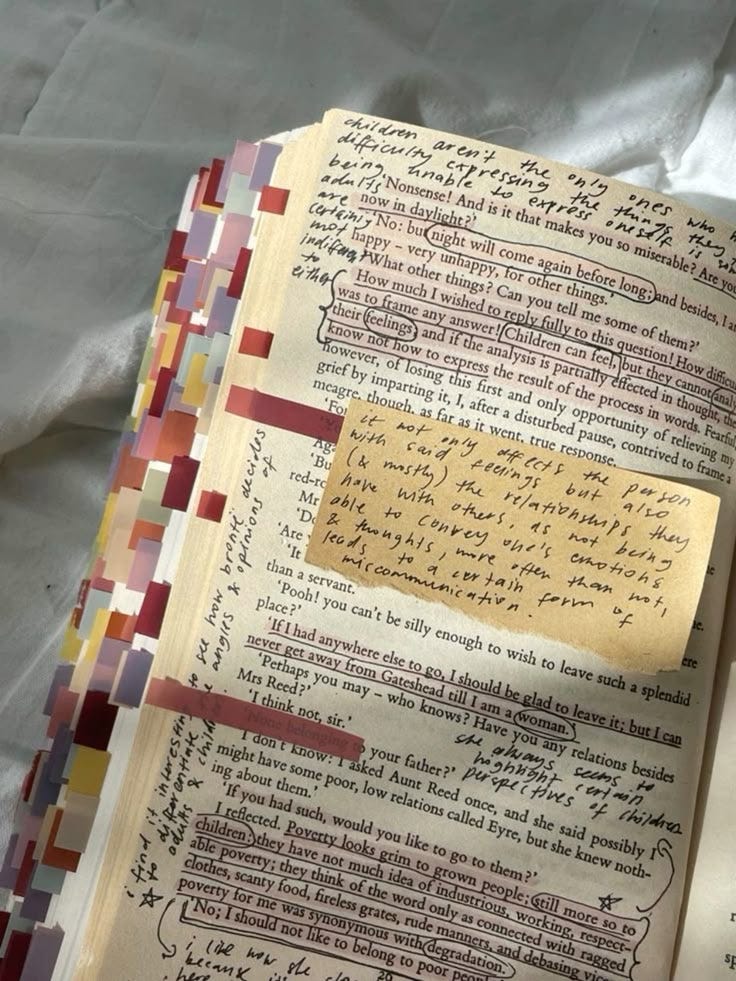 children aren't the only ones who
difficulty expressing the things they
being unable to express oneself is
adults
are
certainly
not
indifferent
to
either
'Nonsense! And is it that makes you so miserable? Are you
now in daylight?'
'No: but night will come again before long; and besides, I a
happy – very unhappy, for other things.'
'What other things? Can you tell me some of them?'
How much I wished to reply fully to this question! How difficu
was to frame any answer! Children can feel, but they cannot analy
their feelings; and if the analysis is partially effected in thought, the
know not how to express the result of the process in words. Fearful,
however, of losing this first and only opportunity of relieving my
grief by imparting it, I, after a disturbed pause, contrived to frame a
meagre, though, as far as it went, true response.
'Fo
Ag
'Bu
red-ro
Mr
'Do
'Are
'It
than a servant.
it not only affects the person
with said feelings but also
(& mostly) the relationships they
have with others, as not being
able to convey one's emotions
& thoughts, more often than not,
leads to a certain form of
miscommunication.
ere
'Pooh! you can't be silly enough to wish to leave such a splendid
place?'
'If I had anywhere else to go, I should be glad to leave it; but I can
never get away from Gateshead till I am a woman.'
'Perhaps you may – who knows? Have you any relations besides
Mrs Reed?'
'I think not, sir.'
'None belonging to your father?'
she always seems to
highlight certain
perspectives of children
'I don't know: I asked Aunt Reed once, and she said possibly I
might have some poor, low relations called Eyre, but she knew noth-
ing about them.'
'If you had such, would you like to go to them?'
I reflected. Poverty looks grim to grown people; still more so to
children: they have not much idea of industrious, working, respect-
able poverty; they think of the word only as connected with ragged
clothes, scanty food, fireless grates, rude manners, and debasing vice
poverty for me was synonymous with degradation.
'No; I should not like to belong to poor peopl
i find it interesting to see how brontë decides
to differentiate the angles & opinions of
adults & children
i like how she
because
here
20